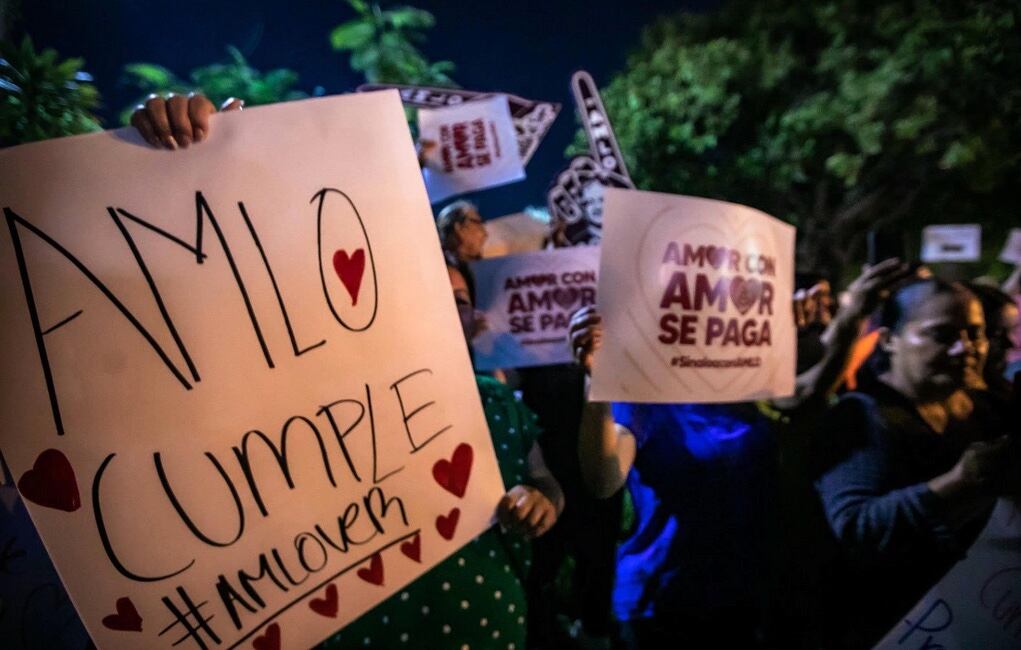 AMLO
CUMPLE
#AMLOVER
AMOR CON
AMOR
SE PAGA
AMOR CON
AMOR
SE PA
AMOR CON
AMOR
SE PAGA
#SinaloaconAMLO